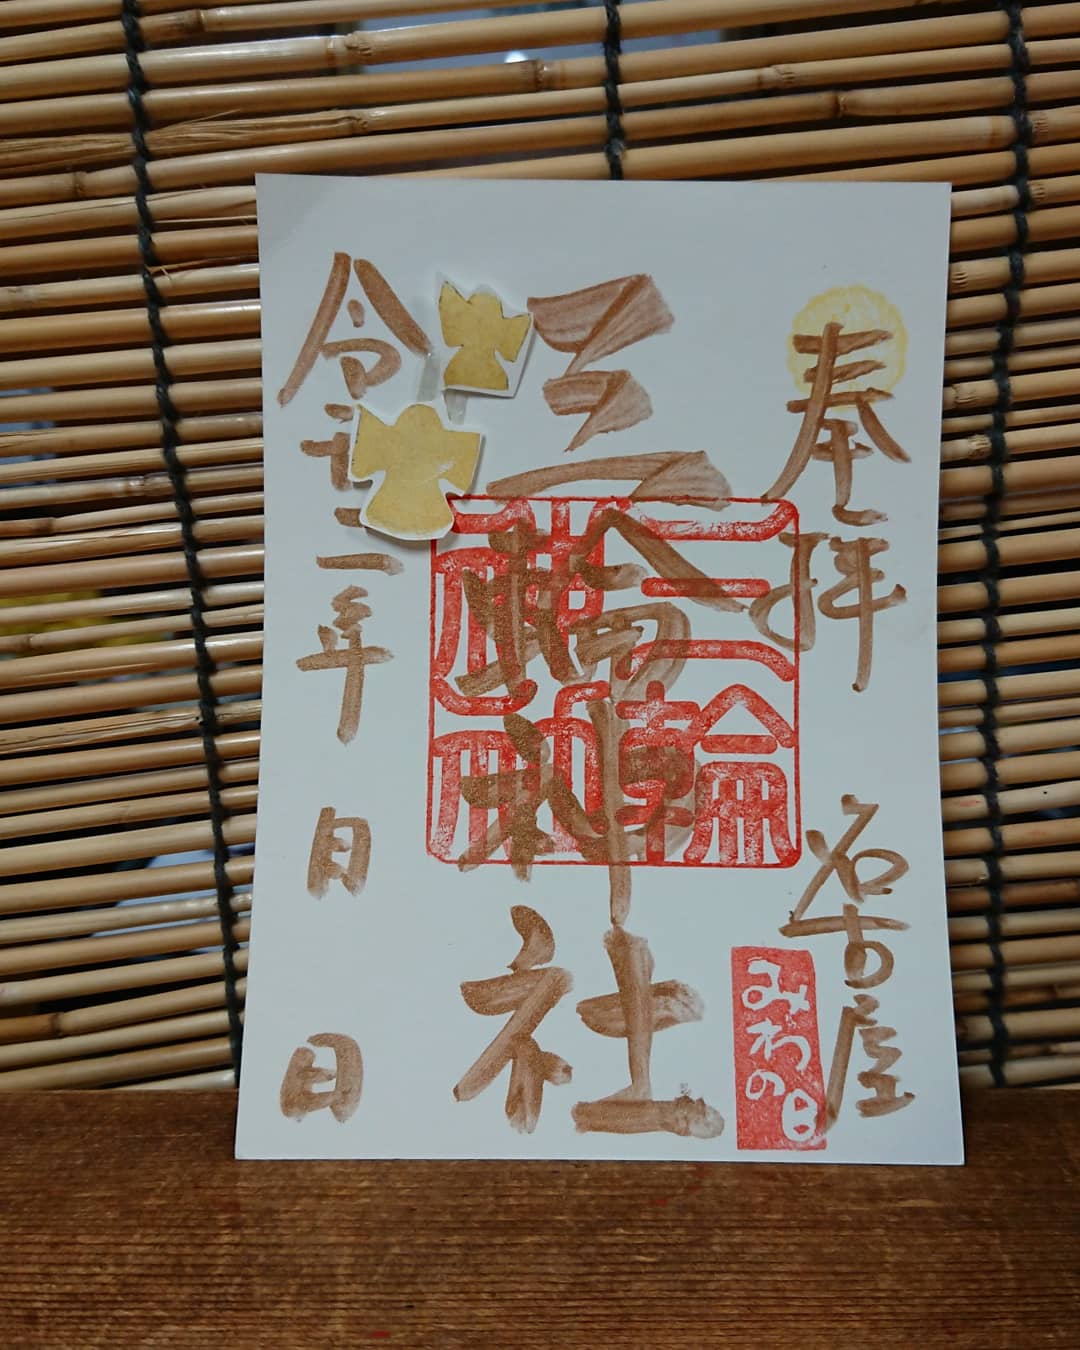 奉拝
名古屋
みわの日
三輪神社
三輪神社
令和二年
月
日